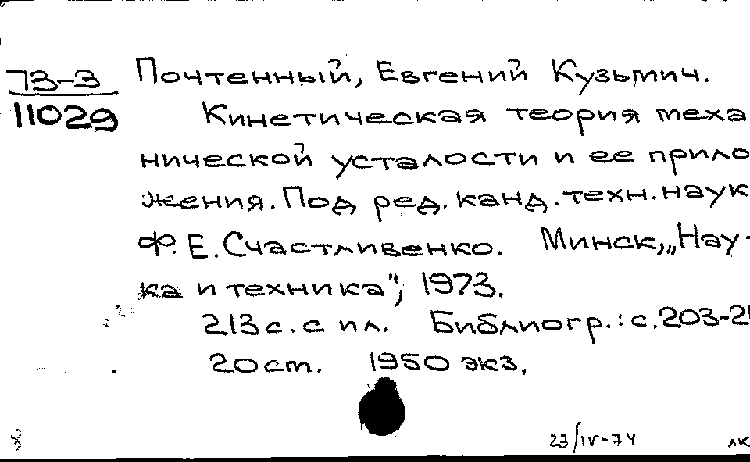 73-3 Почтенный, Евгений Кузьмич.
11029 Кинетическая теория меха
нической усталости и ее прило
жения. Под ред. канд. техн. наук
Ф.Е. Счастливенко. Минск, „Нау-
ка и техника", 1973.
213 с. с ил. Библиогр.: с. 203-2
20 см. 1950 экз.
23/IV-74 лк